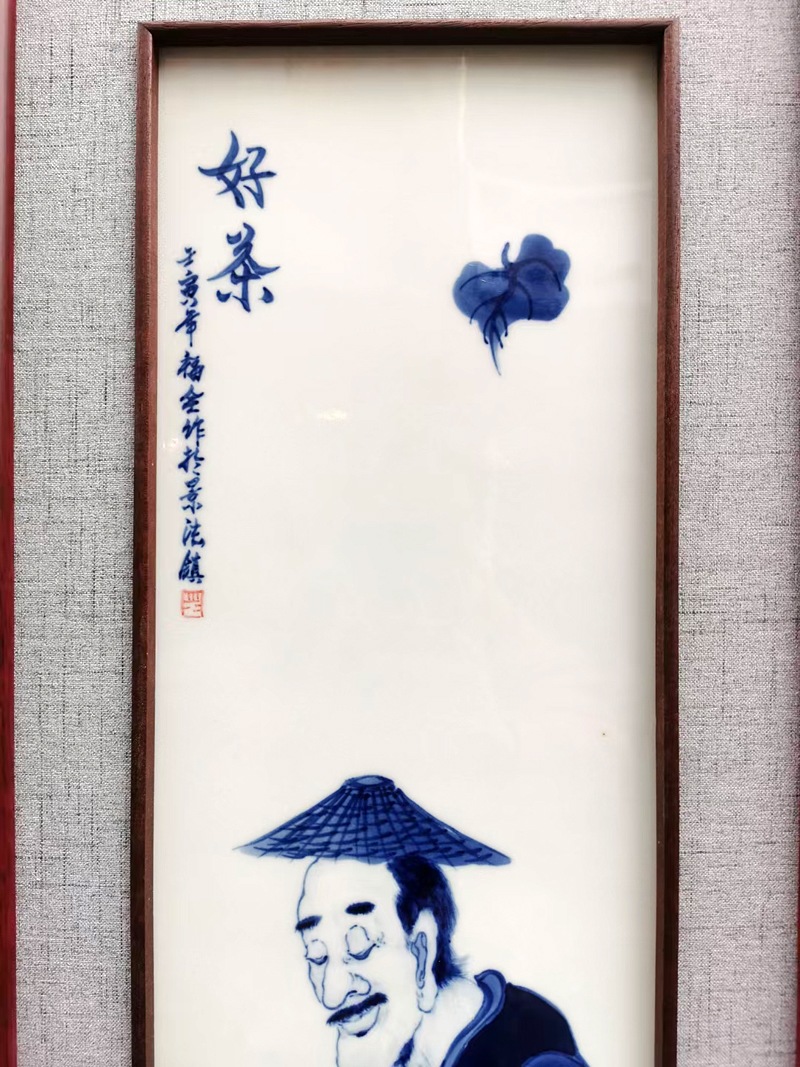 好茶
壬寅年福作於景德鎮